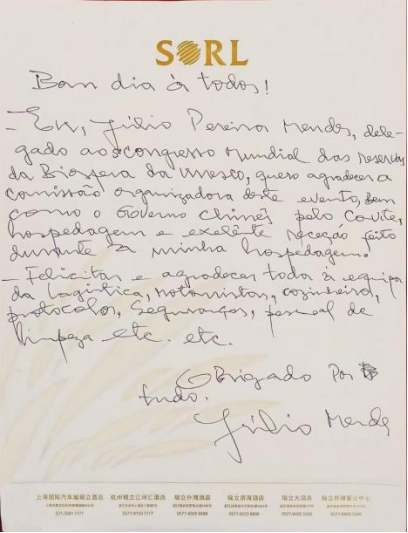 SORL
Bom dia à todos!
- Eu, Júlio Pereira Mendes, dele-
gado ao congresso Mundial das Reservas
da Biosfera da Unesco, quero agradecer a
comissão organizadora deste evento, Bem
como o Governo chinês pelo Covite,
hospedagem e exelênte receção feito
durante a minha hospedagem.
- Felicitar e agradecer toda à equipa
da Logística, motoristas, cozinheiros,
protocolos, Seguranças, pessoal de
limpeza etc. etc.
Obrigado Por
tudo.
Júlio Mendes
上海国际汽车城瑞立酒店 杭州瑞立江河汇酒店 瑞立外滩酒店 瑞立滨海酒店 瑞立大酒店